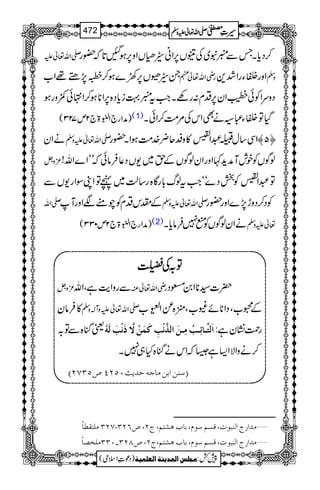 472 سیرتِ مصطفیٰ صلی اللہ تعالیٰ علیہ وسلم
کر دیا۔ جس سے منبر نبوی کی تینوں پرانی سیڑھیاں اوپر ہو گئیں تاکہ حضور صلی اللہ تعالیٰ علیہ
وسلم اور خلفاء راشدین رضی اللہ تعالیٰ عنہم جن تین سیڑھیوں پر کھڑے ہو کر خطبہ پڑھتے تھے اب
دوسرا کوئی خطیب ان پر قدم نہ رکھے۔ جب یہ منبر بہت زیادہ پرانا ہو کر انتہائی کمزور ہو
گیا تو خلفاء عباسیہ نے بھی اس کی مرمت کرائی۔(1) (مدارج النبوۃ ج۲ ص۳۲۷)
﴿۵﴾ اسی سال قبیلہ عبدالقیس کا وفد حاضر خدمت ہوا۔ حضور صلی اللہ تعالیٰ علیہ وسلم نے ان
لوگوں کو خوش آمدید کہا اور ان لوگوں کے حق میں یوں دعا فرمائی کہ ”اے اللہ! عزوجل
تو عبدالقیس کو بخش دے“ جب یہ لوگ بارگاہ رسالت میں پہنچے تو اپنی سواریوں سے
کود کر دوڑ پڑے اور حضور صلی اللہ تعالیٰ علیہ وسلم کے مقدس قدم کو چومنے لگے اور آپ صلی اللہ
تعالیٰ علیہ وسلم نے ان لوگوں کو منع نہیں فرمایا۔(2) (مدارج النبوۃ ج۲ ص۳۳۰)
توبہ کی فضیلت
حضرت سیدنا ابن مسعود رضی اللہ تعالیٰ عنہ سے روایت ہے، اللہ عزوجل
کے محبوب، دانائے غیوب، منزہ عن العیوب صلی اللہ تعالیٰ علیہ وآلہ وسلم کا فرمان
رحمت نشان ہے: اَلتَّائِبُ مِنَ الذَّنْبِ كَمَنْ لَّا ذَنْبَ لَهٗ یعنی گناہ سے توبہ
کرنے والا ایسا ہے جیسا کہ اس نے گناہ کیا ہی نہیں۔
(سنن ابن ماجہ حدیث ۴۲۵۰ ص ۲۷۳۵)
مدارج النبوت، قسم سوم، باب ہشتم، ج۲، ص۳۲۶۔۳۲۷ ملتقطاً
مدارج النبوت، قسم سوم، باب ہشتم، ج۲، ص۳۲۸۔۳۳۰ ملخصاً
پیش کش: مجلس المدینة العلمیة (دعوتِ اسلامی)